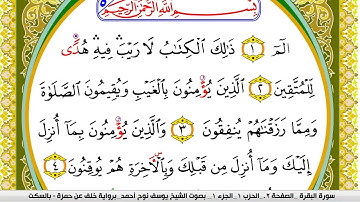 بِسْمِ اللَّهِ الرَّحْمَٰنِ الرَّحِيمِ
الٓمٓ ١ ذَٰلِكَ الْكِتَابُ لَا رَيْبَ فِيهِ هُدًى
لِّلْمُتَّقِينَ ٢ الَّذِينَ يُؤْمِنُونَ بِالْغَيْبِ وَيُقِيمُونَ الصَّلَوٰةَ
وَمِمَّا رَزَقْنَاهُمْ يُنفِقُونَ ٣ وَالَّذِينَ يُؤْمِنُونَ بِمَا أُنزِلَ
إِلَيْكَ وَمَا أُنزِلَ مِن قَبْلِكَ وَبِالْآخِرَةِ هُمْ يُوقِنُونَ ٤
سورة البقرة _الصفحة ٢_ الحزب ١_الجزء ١_ بصوت الشيخ يوسف نوح أحمد_ برواية خلف عن حمزة - بالسكت